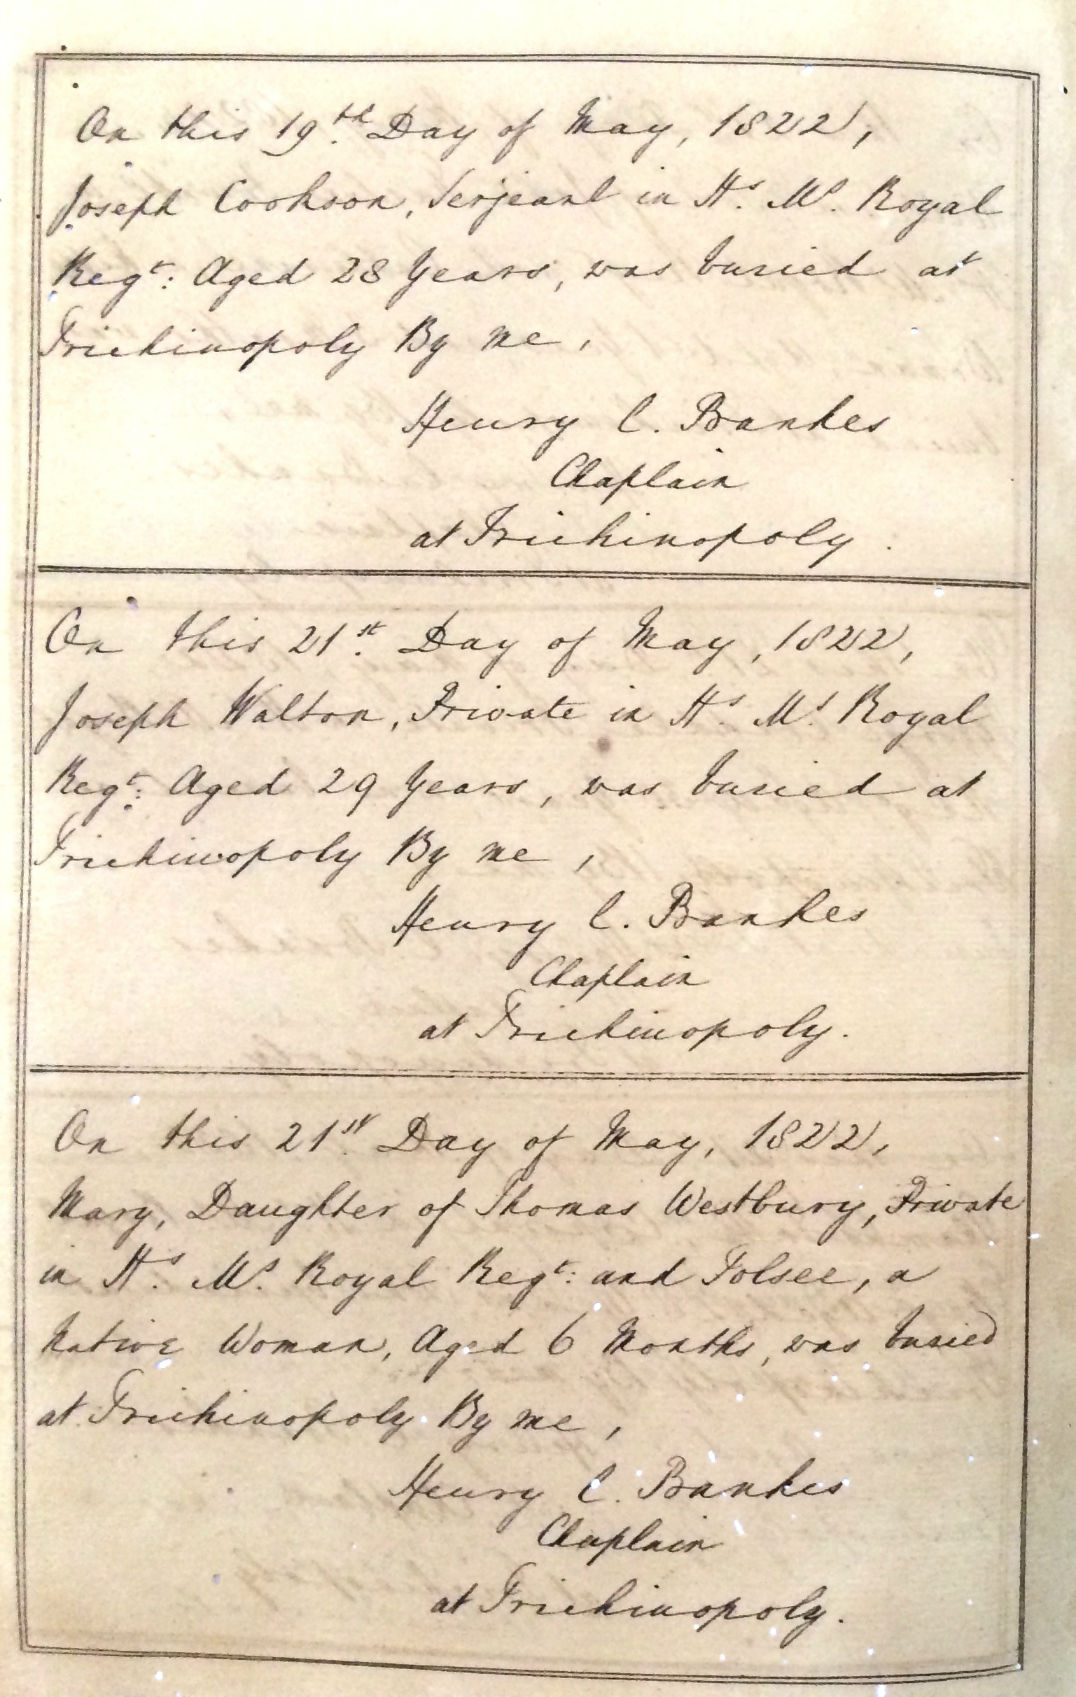 On this 19th. Day of May, 1822,
Joseph Cookson, Serjeant in Hs. Ms. Royal
Regt: Aged 28 Years, was buried at
Trichinopoly By me,
Henry C. Bankes
Chaplain
at Trichinopoly.
On this 21st. Day of May, 1822,
Joseph Walton, Private in Hs. Ms. Royal
Regt: Aged 29 Years, was buried at
Trichinopoly By me,
Henry C. Bankes
Chaplain
at Trichinopoly.
On this 21st. Day of May, 1822,
Mary, Daughter of Thomas Westbury, Private
in Hs. Ms. Royal Regt: and Tolsee, a
Native Woman, Aged 6 Months, was buried
at Trichinopoly. By me,
Henry C. Bankes
Chaplain
at Trichinopoly.